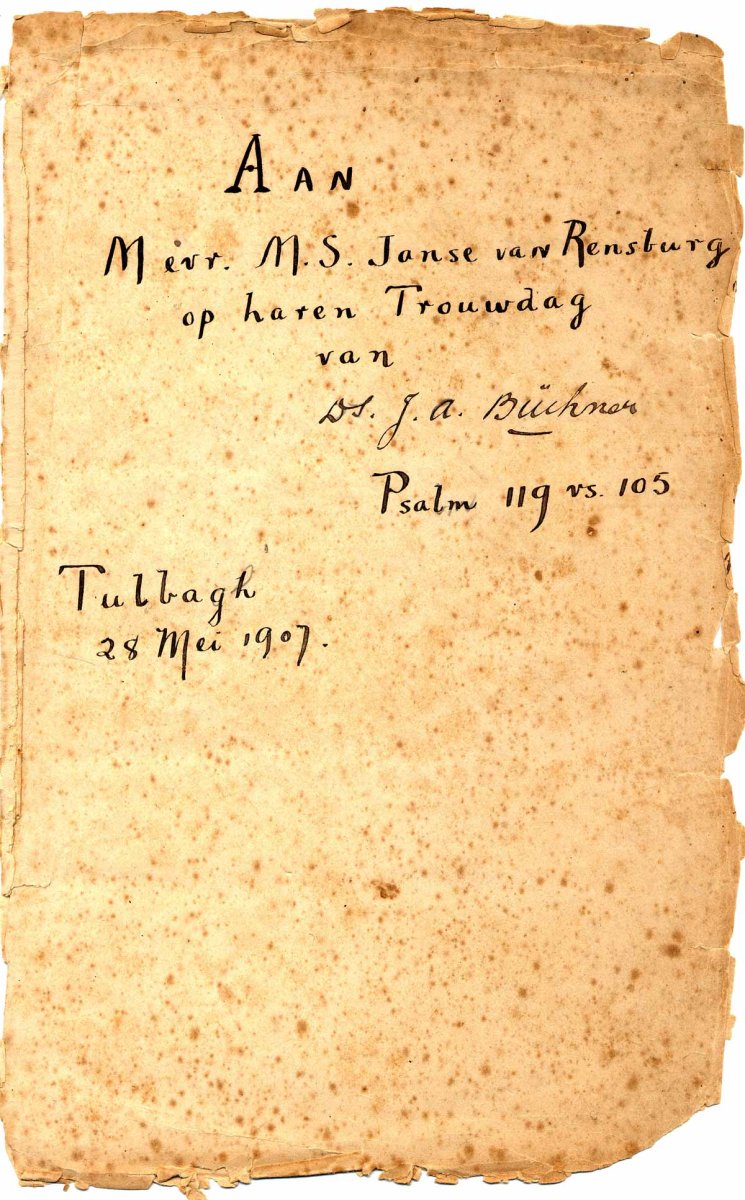 AAN
Mevr. M. S. Janse van Rensburg
op haren Trouwdag
van
Ds. J. A. Büchner
Psalm 119 vs. 105
Tulbagh
28 Mei 1907.